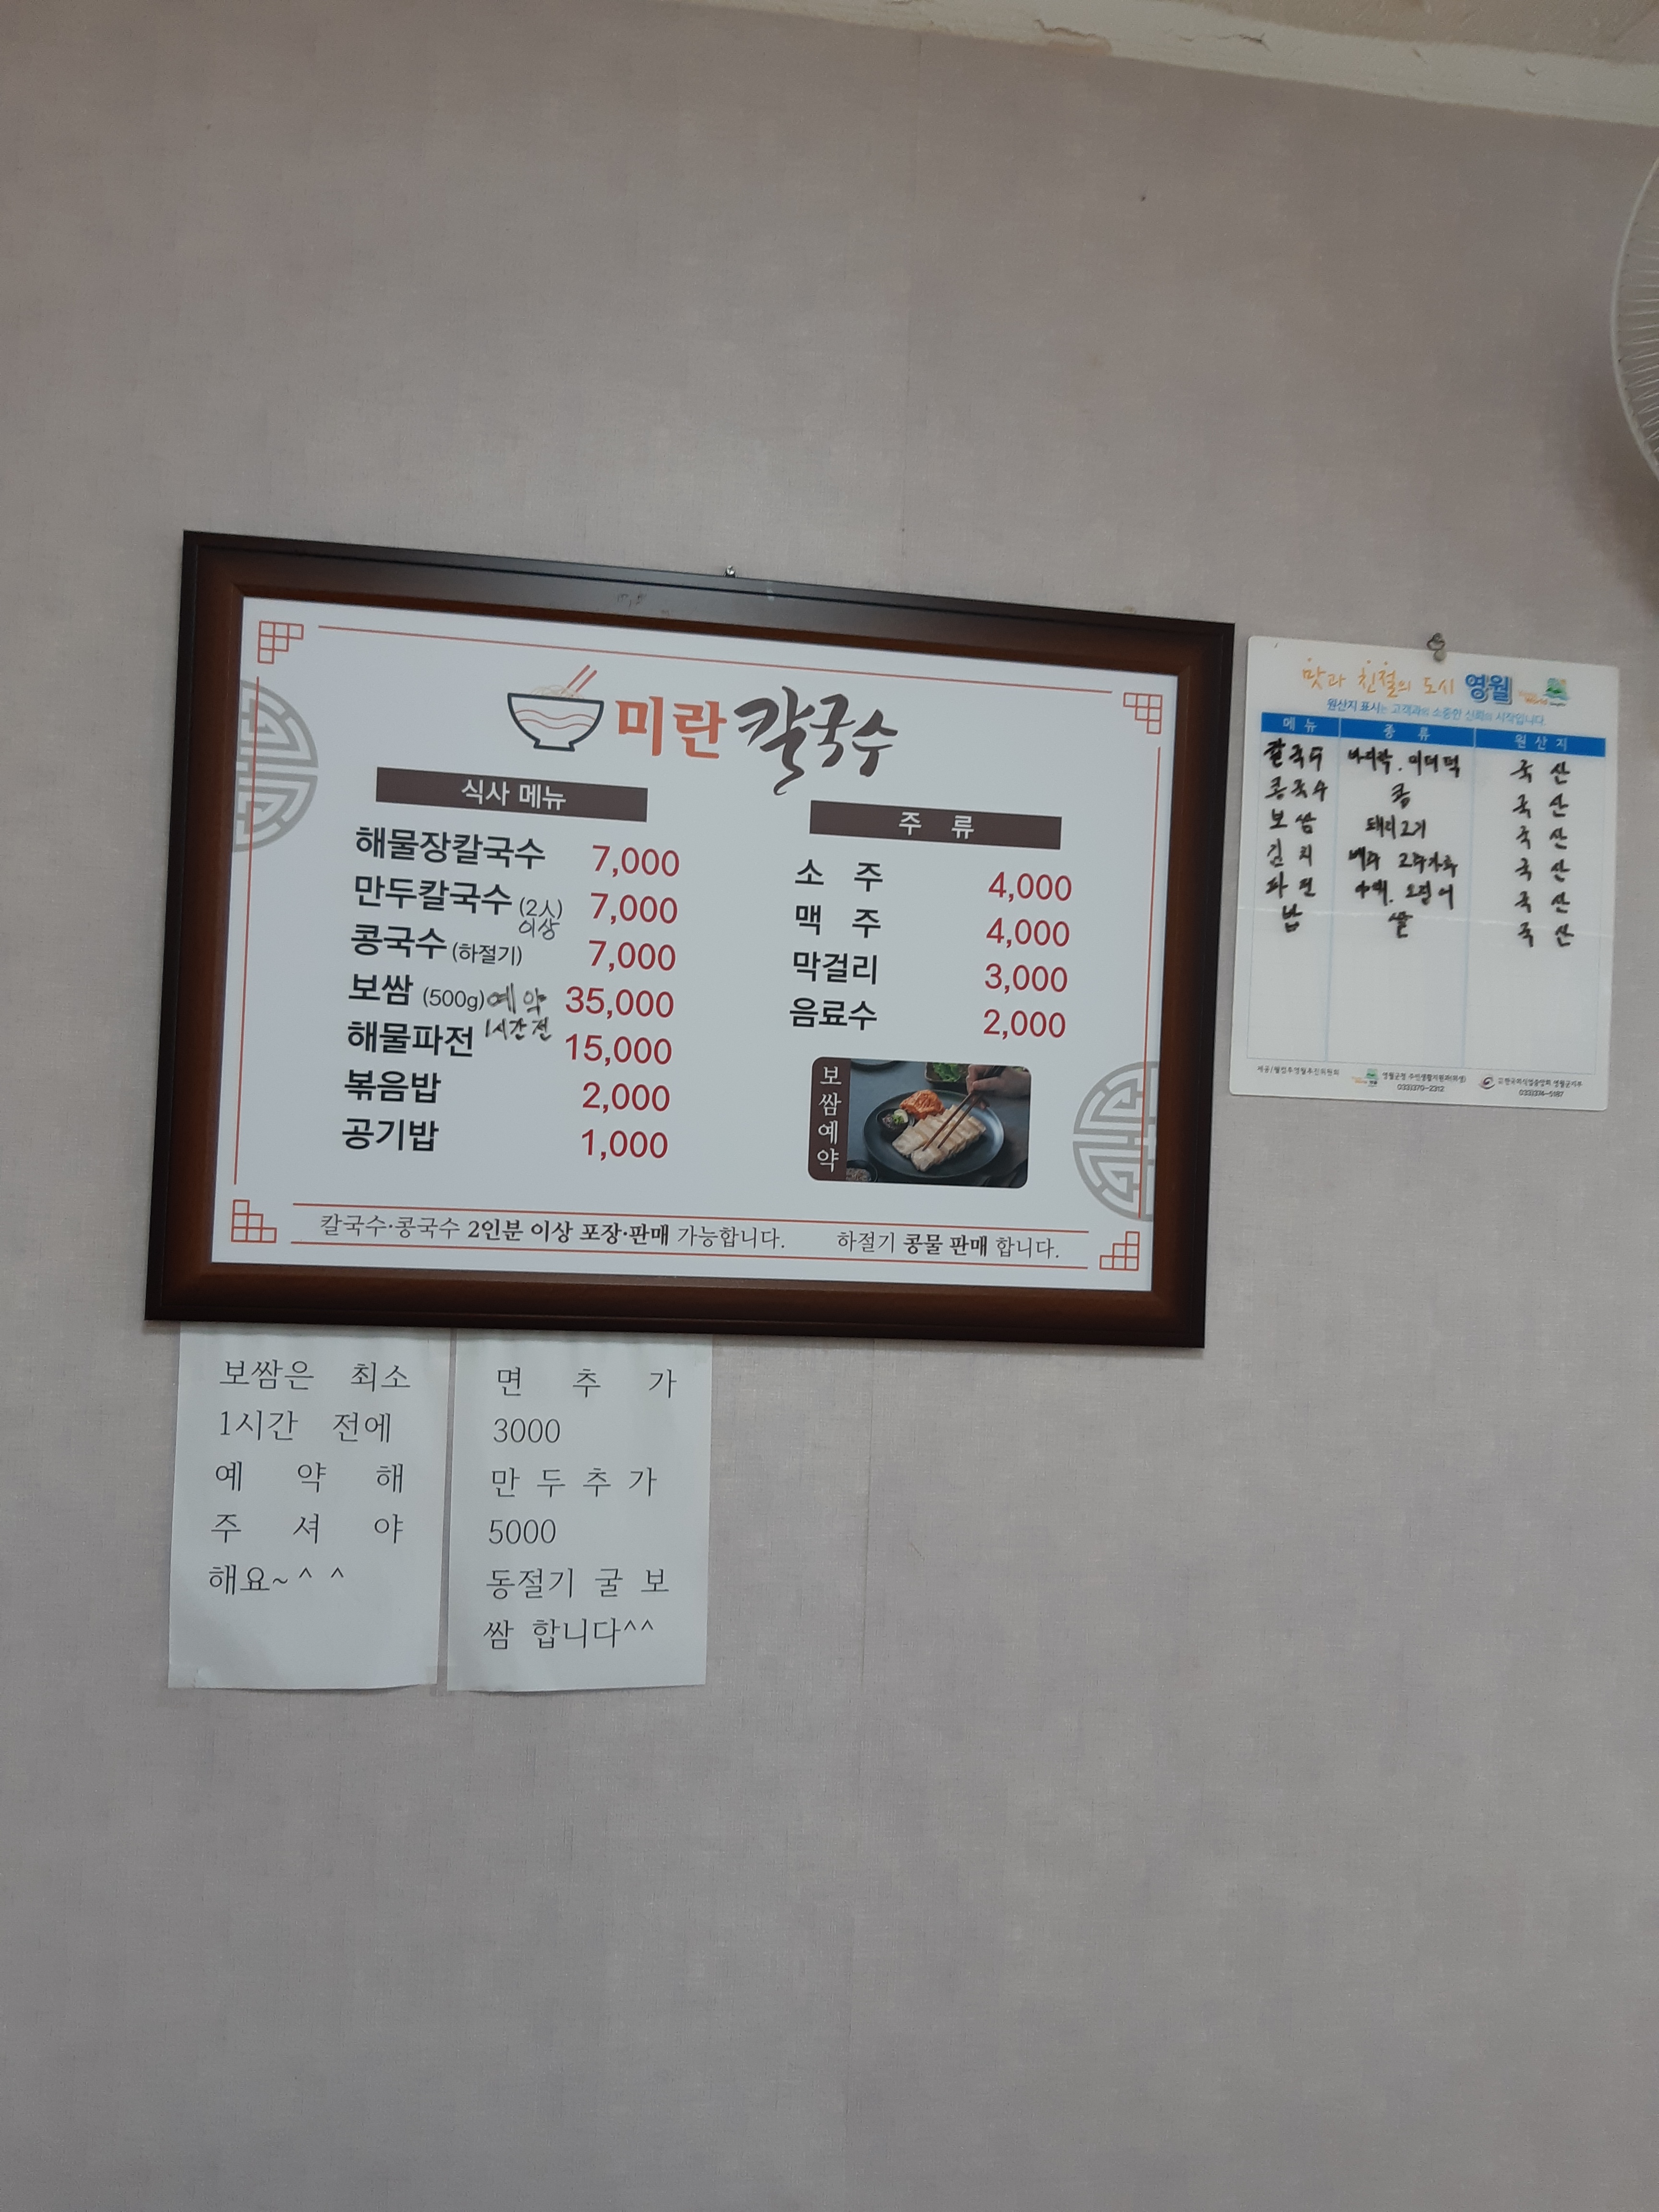 미란칼국수
식사 메뉴
해물장칼국수 7,000
만두칼국수 (2人이상) 7,000
콩국수 (하절기) 7,000
보쌈 (500g) 예약 1시간전 35,000
해물파전 15,000
볶음밥 2,000
공기밥 1,000
주 류
소 주 4,000
맥 주 4,000
막걸리 3,000
음료수 2,000
보쌈예약
칼국수·콩국수 2인분 이상 포장·판매 가능합니다. 하절기 콩물 판매 합니다.
맛과 친절의 도시 영월
원산지 표시는 고객과의 소중한 신뢰의 시작입니다.
메뉴 종류 원산지
칼국수 바지락. 미더덕 국산
콩국수 콩 국산
보쌈 돼지고기 국산
김치 배추 고추가루 국산
파전 야채. 오징어 국산
밥 쌀 국산
영월군청 주민생활지원과(위생)
033)370-2312
033)374-5187
보쌈은 최소
1시간 전에
예 약 해
주 셔 야
해요~^ ^
면 추 가
3000
만 두 추 가
5000
동절기 굴 보
쌈 합니다^^